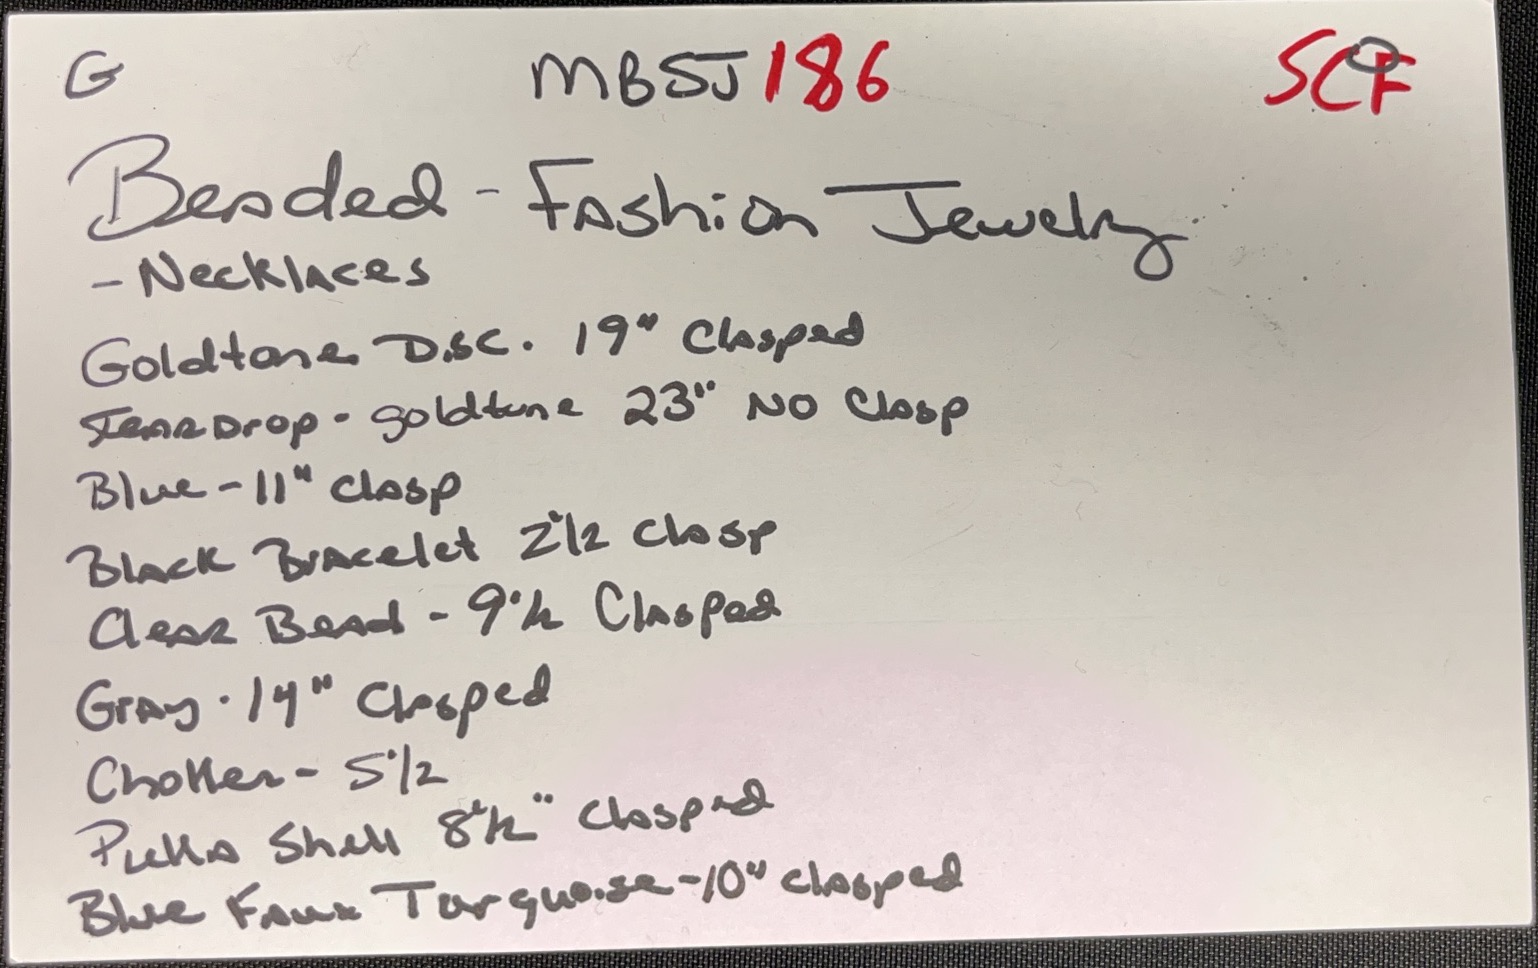 G MBSJ186 SCF
Beaded - Fashion Jewelry
- Necklaces
Goldtone Disc. 19" Clasped
TearDrop - goldtone 23" No Clasp
Blue - 11" clasp
Black Bracelet 2 1/2 Clasp
Clear Bead - 9 1/2 Clasped
Gray - 14" Clasped
Choker - 5 1/2
Pukka Shell 8 1/2" Clasped
Blue Faux Turquoise - 10" clasped